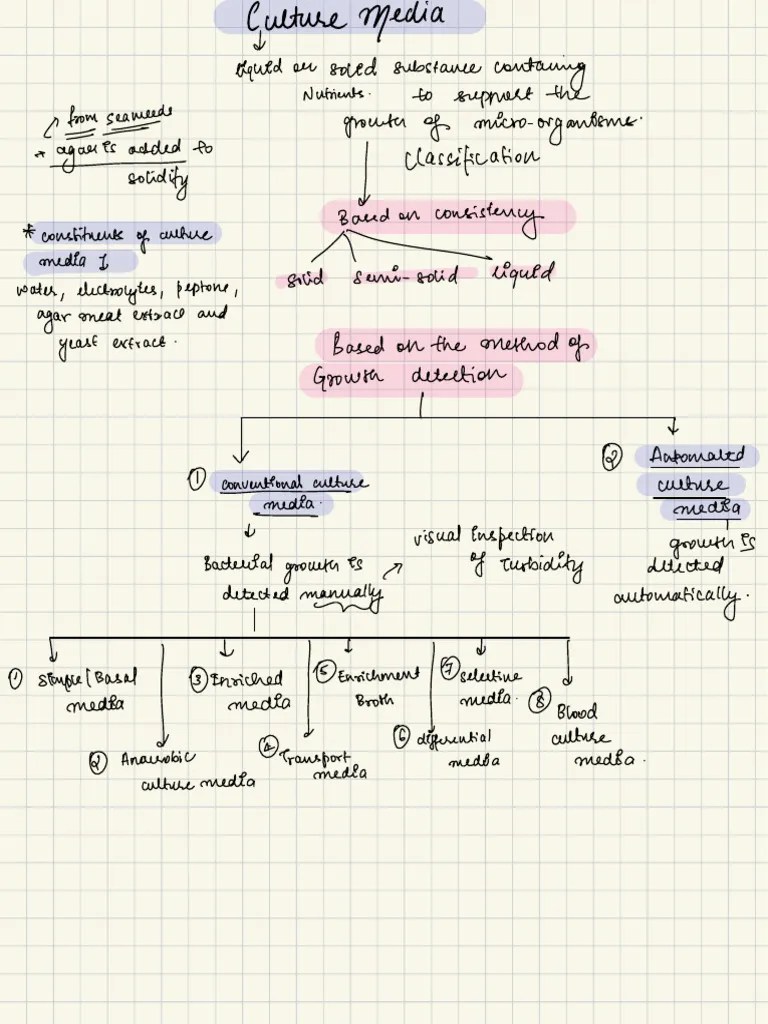 Culture Media
Liquid or solid substance containing
Nutrients. to support the
growth of micro-organisms.
Classification
from seaweeds
* agar is added to
solidify
* constituents of culture
media
water, electrolytes, peptone,
agar meat extract and
yeast extract.
Based on consistency
solid semi-solid liquid
Based on the method of
Growth detection
① conventional culture
media.
Bacterial growth is
detected manually
visual Inspection
of Turbidity
② Automated
culture
media
growth is
detected
automatically.
① Simple/Basal
media
② Anaerobic
culture media
③ Enriched
media
④ Transport
media
⑤ Enrichment
Broth
⑥ differential
media
⑦ selective
media.
⑧ Blood
culture
media.